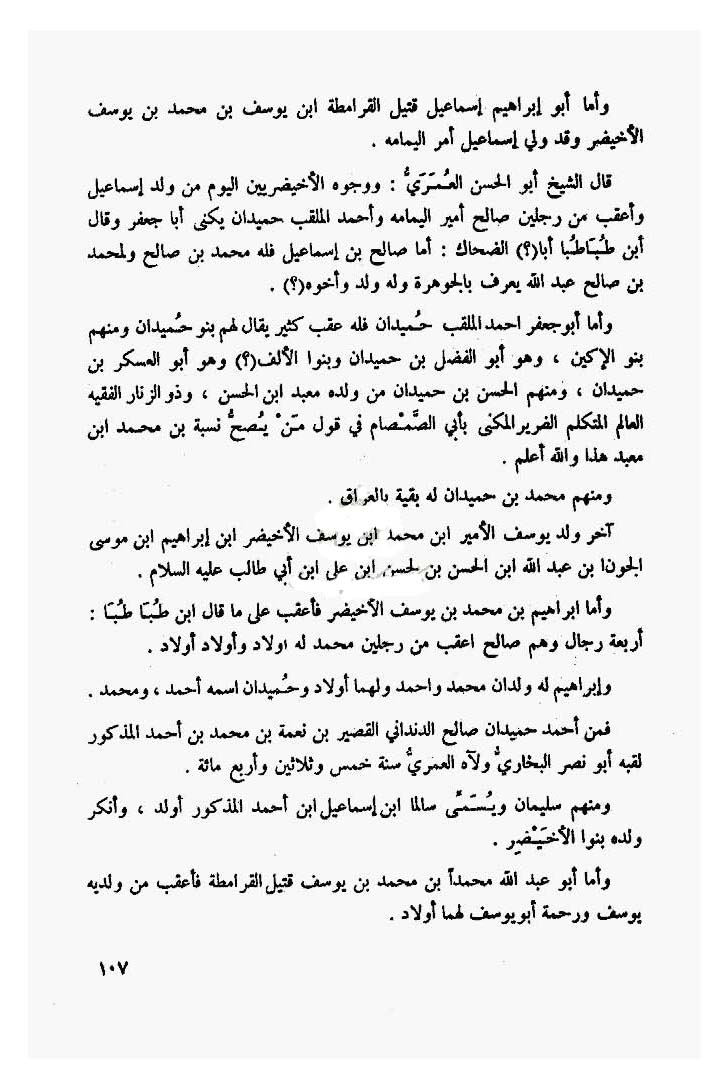 وأما أبو إبراهيم إسماعيل قتيل القرامطة ابن يوسف بن محمد بن يوسف
الأخيضر وقد ولي إسماعيل أمر اليمامه .
قال الشيخ أبو الحسن العُمَرَيُّ : ووجوه الأخيضريين اليوم من ولد إسماعيل
وأعقب من رجلين صالح أمير اليمامه وأحمد الملقب حميدان يكنى أبا جعفر وقال
أبن طُبَاطُبا أبا(؟) الضحاك : أما صالح بن إسماعيل فله محمد بن صالح ولمحمد
بن صالح عبد الله يعرف بالجوهرة وله ولد وأخوه(؟) .
وأما أبوجعفر احمد الملقب حُميدان فله عقب كثير يقال لهم بنو حُميدان ومنهم
بنو الإكين ، وهو أبو الفضل بن حميدان وبنوا الألف(؟) وهو أبو العسكر بن
حميدان ، ومنهم الحسن بن حميدان من ولده معبد ابن الحسن ، وذو الزنار الفقيه
العالم المتكلم الفرير المكنى بأبي الصَّمْصام في قول مَنْ يُصحُّ نسبة بن محمد ابن
معبد هذا والله أعلم .
ومنهم محمد بن حميدان له بقية بالعراق .
آخر ولد يوسف الأمير ابن محمد ابن يوسف الأخيضر ابن إبراهيم ابن موسى
الجونا بن عبد الله ابن الحسن بن لحسن ابن على ابن أبي طالب عليه السلام .
وأما ابراهيم بن محمد بن يوسف الأخيضر فأعقب على ما قال ابن طُبَا طُبَا :
أربعة رجال وهم صالح اعقب من رجلين محمد له اولاد وأولاد أولاد .
وإبراهيم له ولدان محمد واحمد ولهما أولاد وحُميدان اسمه أحمد ، ومحمد .
فمن أحمد حميدان صالح الدنداني القصير بن نعمة بن محمد بن أحمد المذكور
لقبه أبو نصر البخاريُّ ولآه العمريُّ سنة خمس وثلاثين وأربع مائة .
ومنهم سليمان ويُسَمَّى سالما ابن إسماعيل ابن أحمد المذكور أولد ، وأنكر
ولده بنوا الأخَيْضِر .
وأما أبو عبد الله محمدآ بن محمد بن يوسف قتيل القرامطة فأعقب من ولديه
يوسف ورحمة أبو يوسف لهما أولاد .
١٠٧